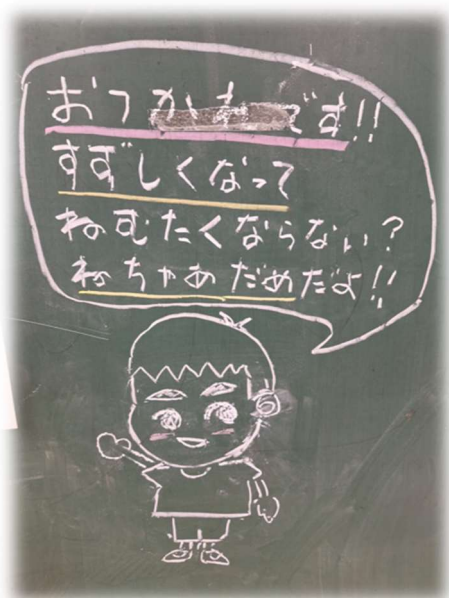 おつかれです!!
すずしくなって
ねむたくならない?
ねちゃあだめだよ!!